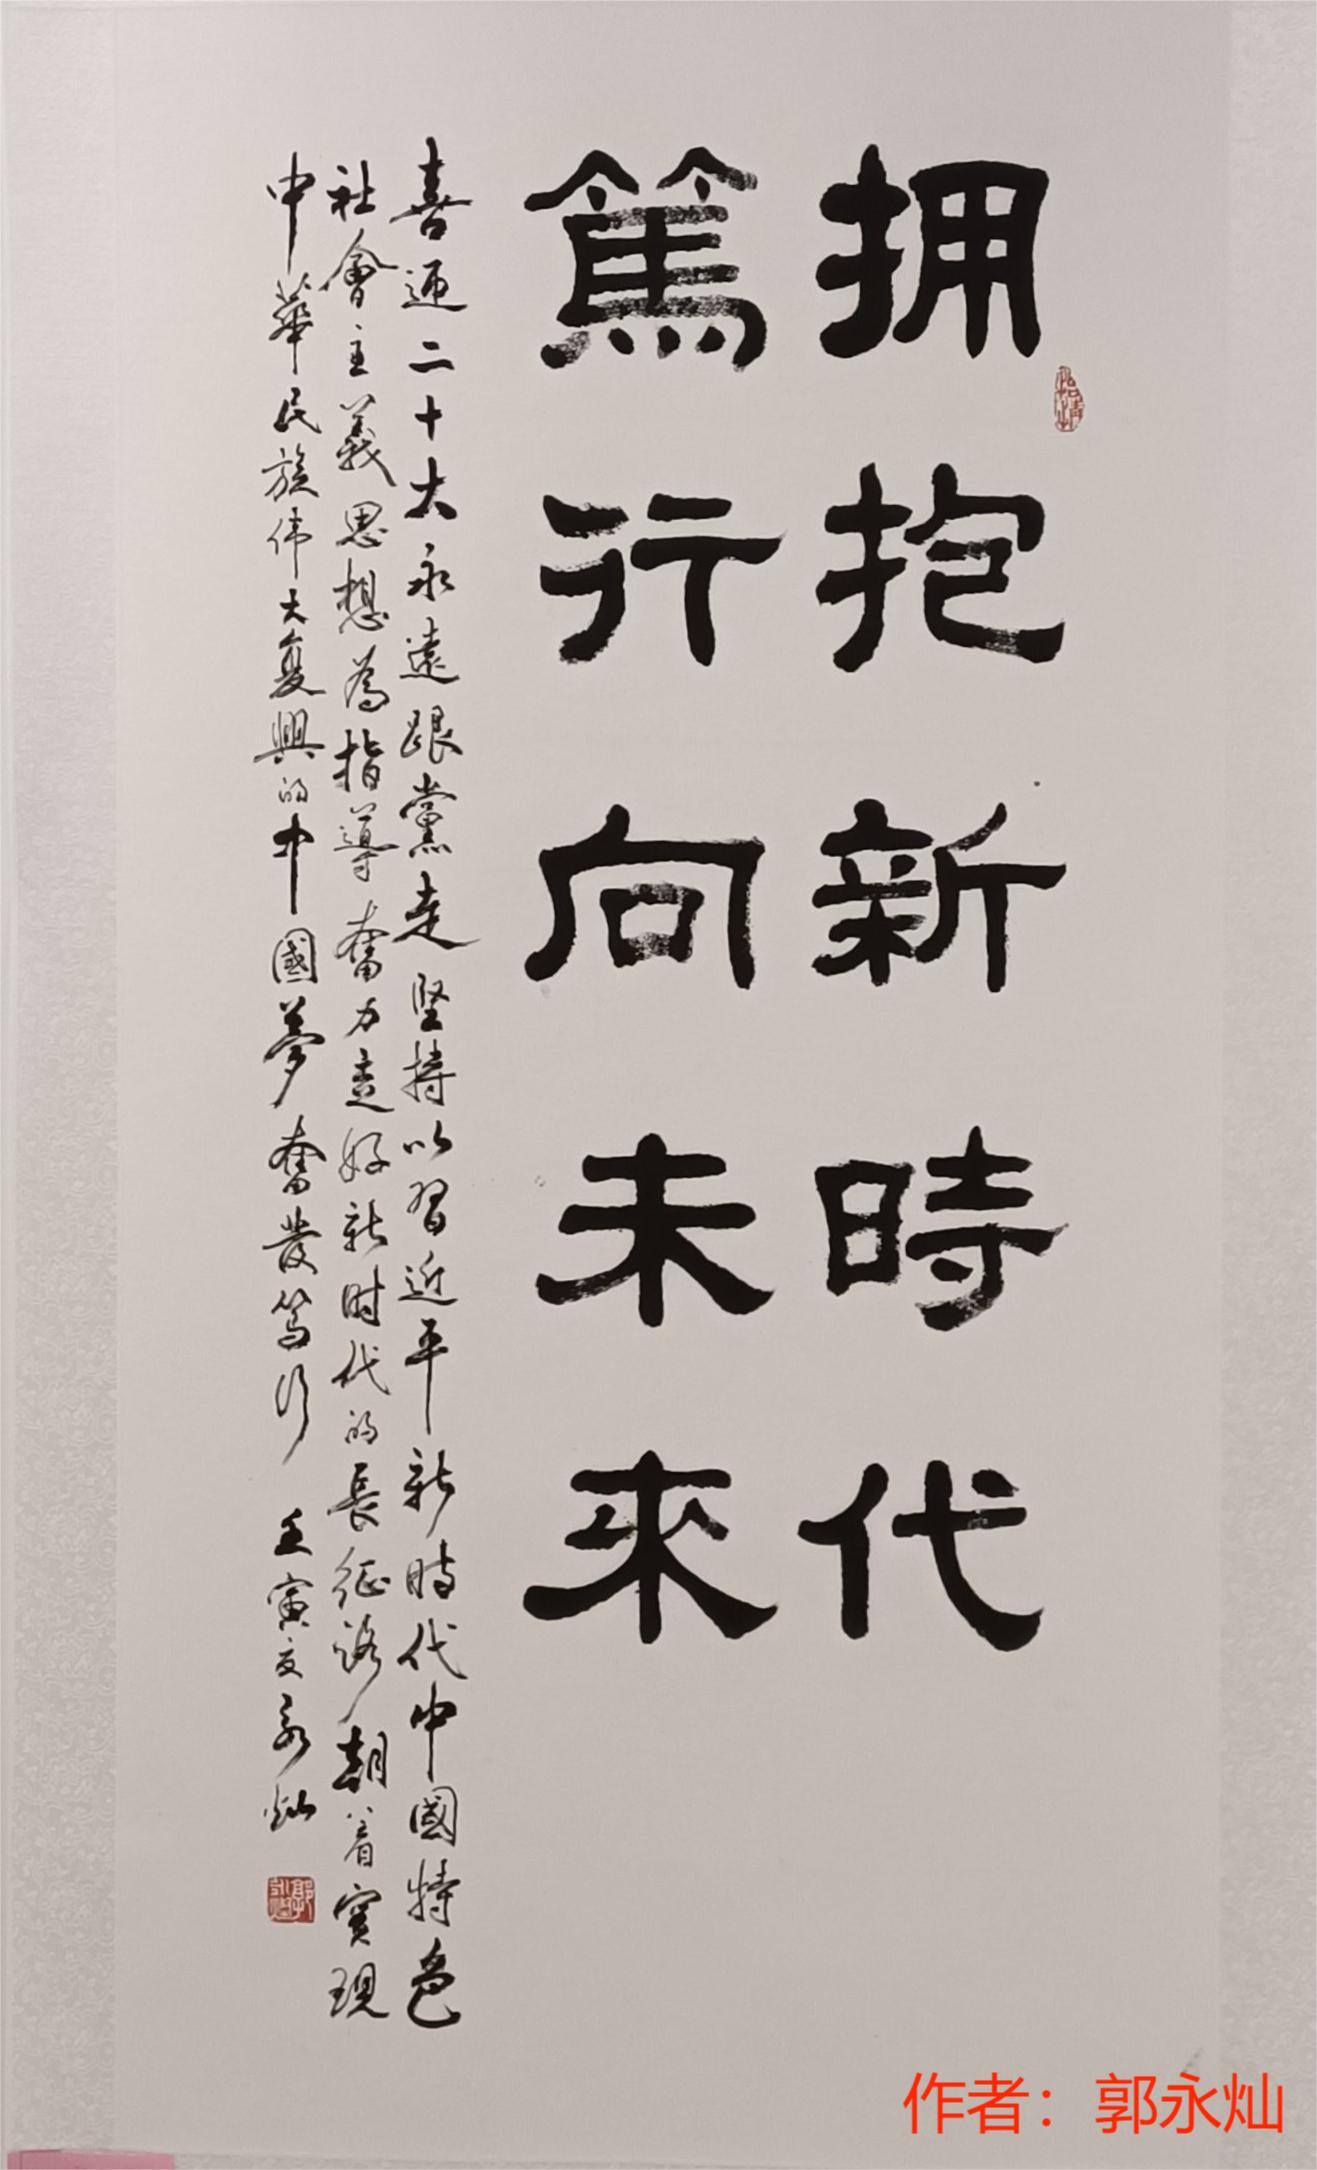 拥抱新時代
篤行向未來
喜迎二十大永遠跟黨走坚持以習近平新時代中國特色
社會主義思想為指導奮力走好新时代的長征路朝着实現
中華民族伟大复興的中國夢奮發笃行 壬寅夏永灿
作者：郭永灿